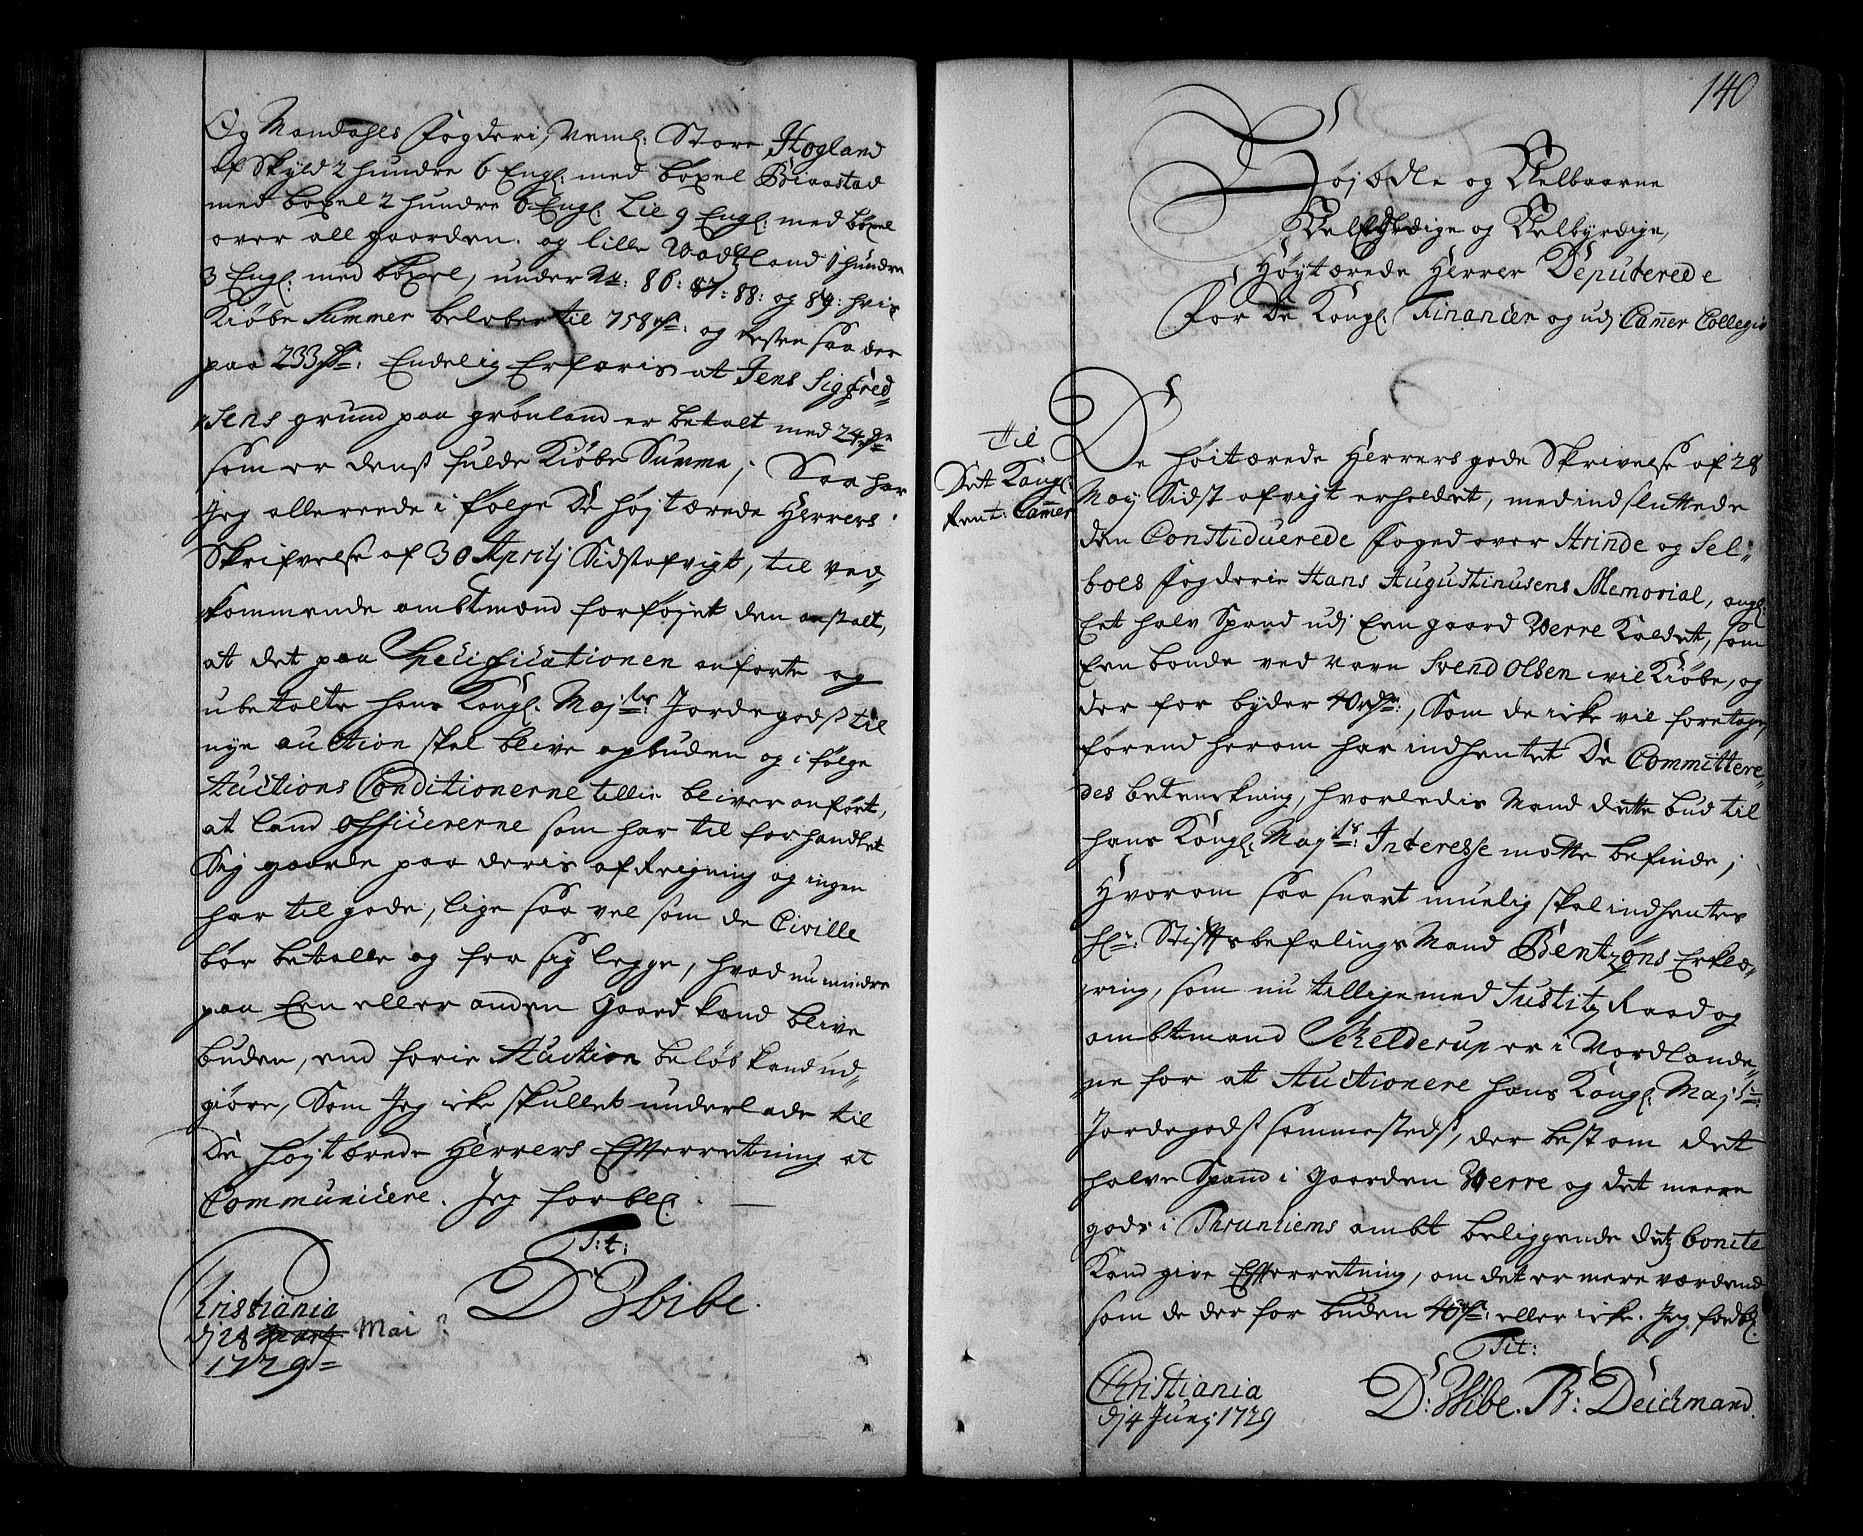 Og Mandahls Fogderi, Neml: Store Hogland
af Skyld 2 hundre 6 Engl: med boxel Briaastad
med boxel 2 hundre 6 Engl: Lie 9 Engl: med boxel
over all gaarden. og lille Vadtzland 1 hundre
3 Engl: med boxel, under No: 86: 87: 88: og 89: hvis
Kiøbe Summer beløber til 758 rd: og Resten saa der
paa 233 rd: Endelig Erfaris at Jens Sigfred-
sens grund paa grønland er betalt med 24 rd
som er dens fulde Kiøbe Summa; Saa har
Jeg allereede i følge De høj tærede Herrers
Skrifvelse af 30 Aprilj Sidstafvigt, til ved-
kommende ambtmænd forføjet den anstalt,
at det paa Specificationen anførte og
ubetalte hans Kongl. Maj:ts Jordegods til
nye auction skal blive opbuden og i følge
Auctions Conditionerne tillie bliver anført,
at land officererne som har til forhandlet
Sig gaarde paa deris afReigning og ingen
har til gode, lige saa vel som de Civille
bør betalle og fra sig legge, hvad nu mindre
paa Een eller anden Gaard kand blive
buden, end forrie Auction beløb kand ud-
giøre, Som Jeg icke skullet underlade til
De høytærede Herrers Efterretning at
Communicere. Jeg forbl:
T:t:
D Wibe.
Christiania
dj 28 Martj Mai
1729
140
Højædle og Velbaarne
Veledle
og Velbyrdige,
Høytærede Herrer Deputerede
For De Kongl. Financer og udj Camer Collegio
Til
Dett Kongl:
Rent: Camer
De høitærede Herrers gode Skrivelse af 28
May Sidst afvigt erholdet, med indsluttede
den Constiduerede Foged over Strinde og Sel-
boes Fogderie Hans Augustinusens Memorial, angl:
Eet halv Spand udj Een gaard Werre Kaldet, som
Een bonde ved Navn Svend Olsen vil Kiøbe, og
der for byder 40 rdr:, Som de icke vil foretage,
førend herom har indhentet De Committere-
des betenckning, hvorledis Mand dette bud til
hans Kongl. May:ts Interesse motte befinde;
Hvorom saa snart muelig skal indhentes
Hr: Stiftsbefalings Mand Bentzons Erklæ-
ring, som nu tillige med Justitz Raad og
ambtmand Schelderup er i Nordlande-
ne for at Auctionere hans Kongl. Maj:ts
Jordegods sammesteds, der best om dett
halve Spand i Gaarden Werre og det meere
gods i Thrunhiems ambt beliggende detz bonite
Kand give Efterretning, om det er mere værdend
som de der for buden 40 rd: eller icke. Jeg forbl.
Tit:
Christiania
dj 4 Junj 1729
D: Wibe. B: Deichmand.